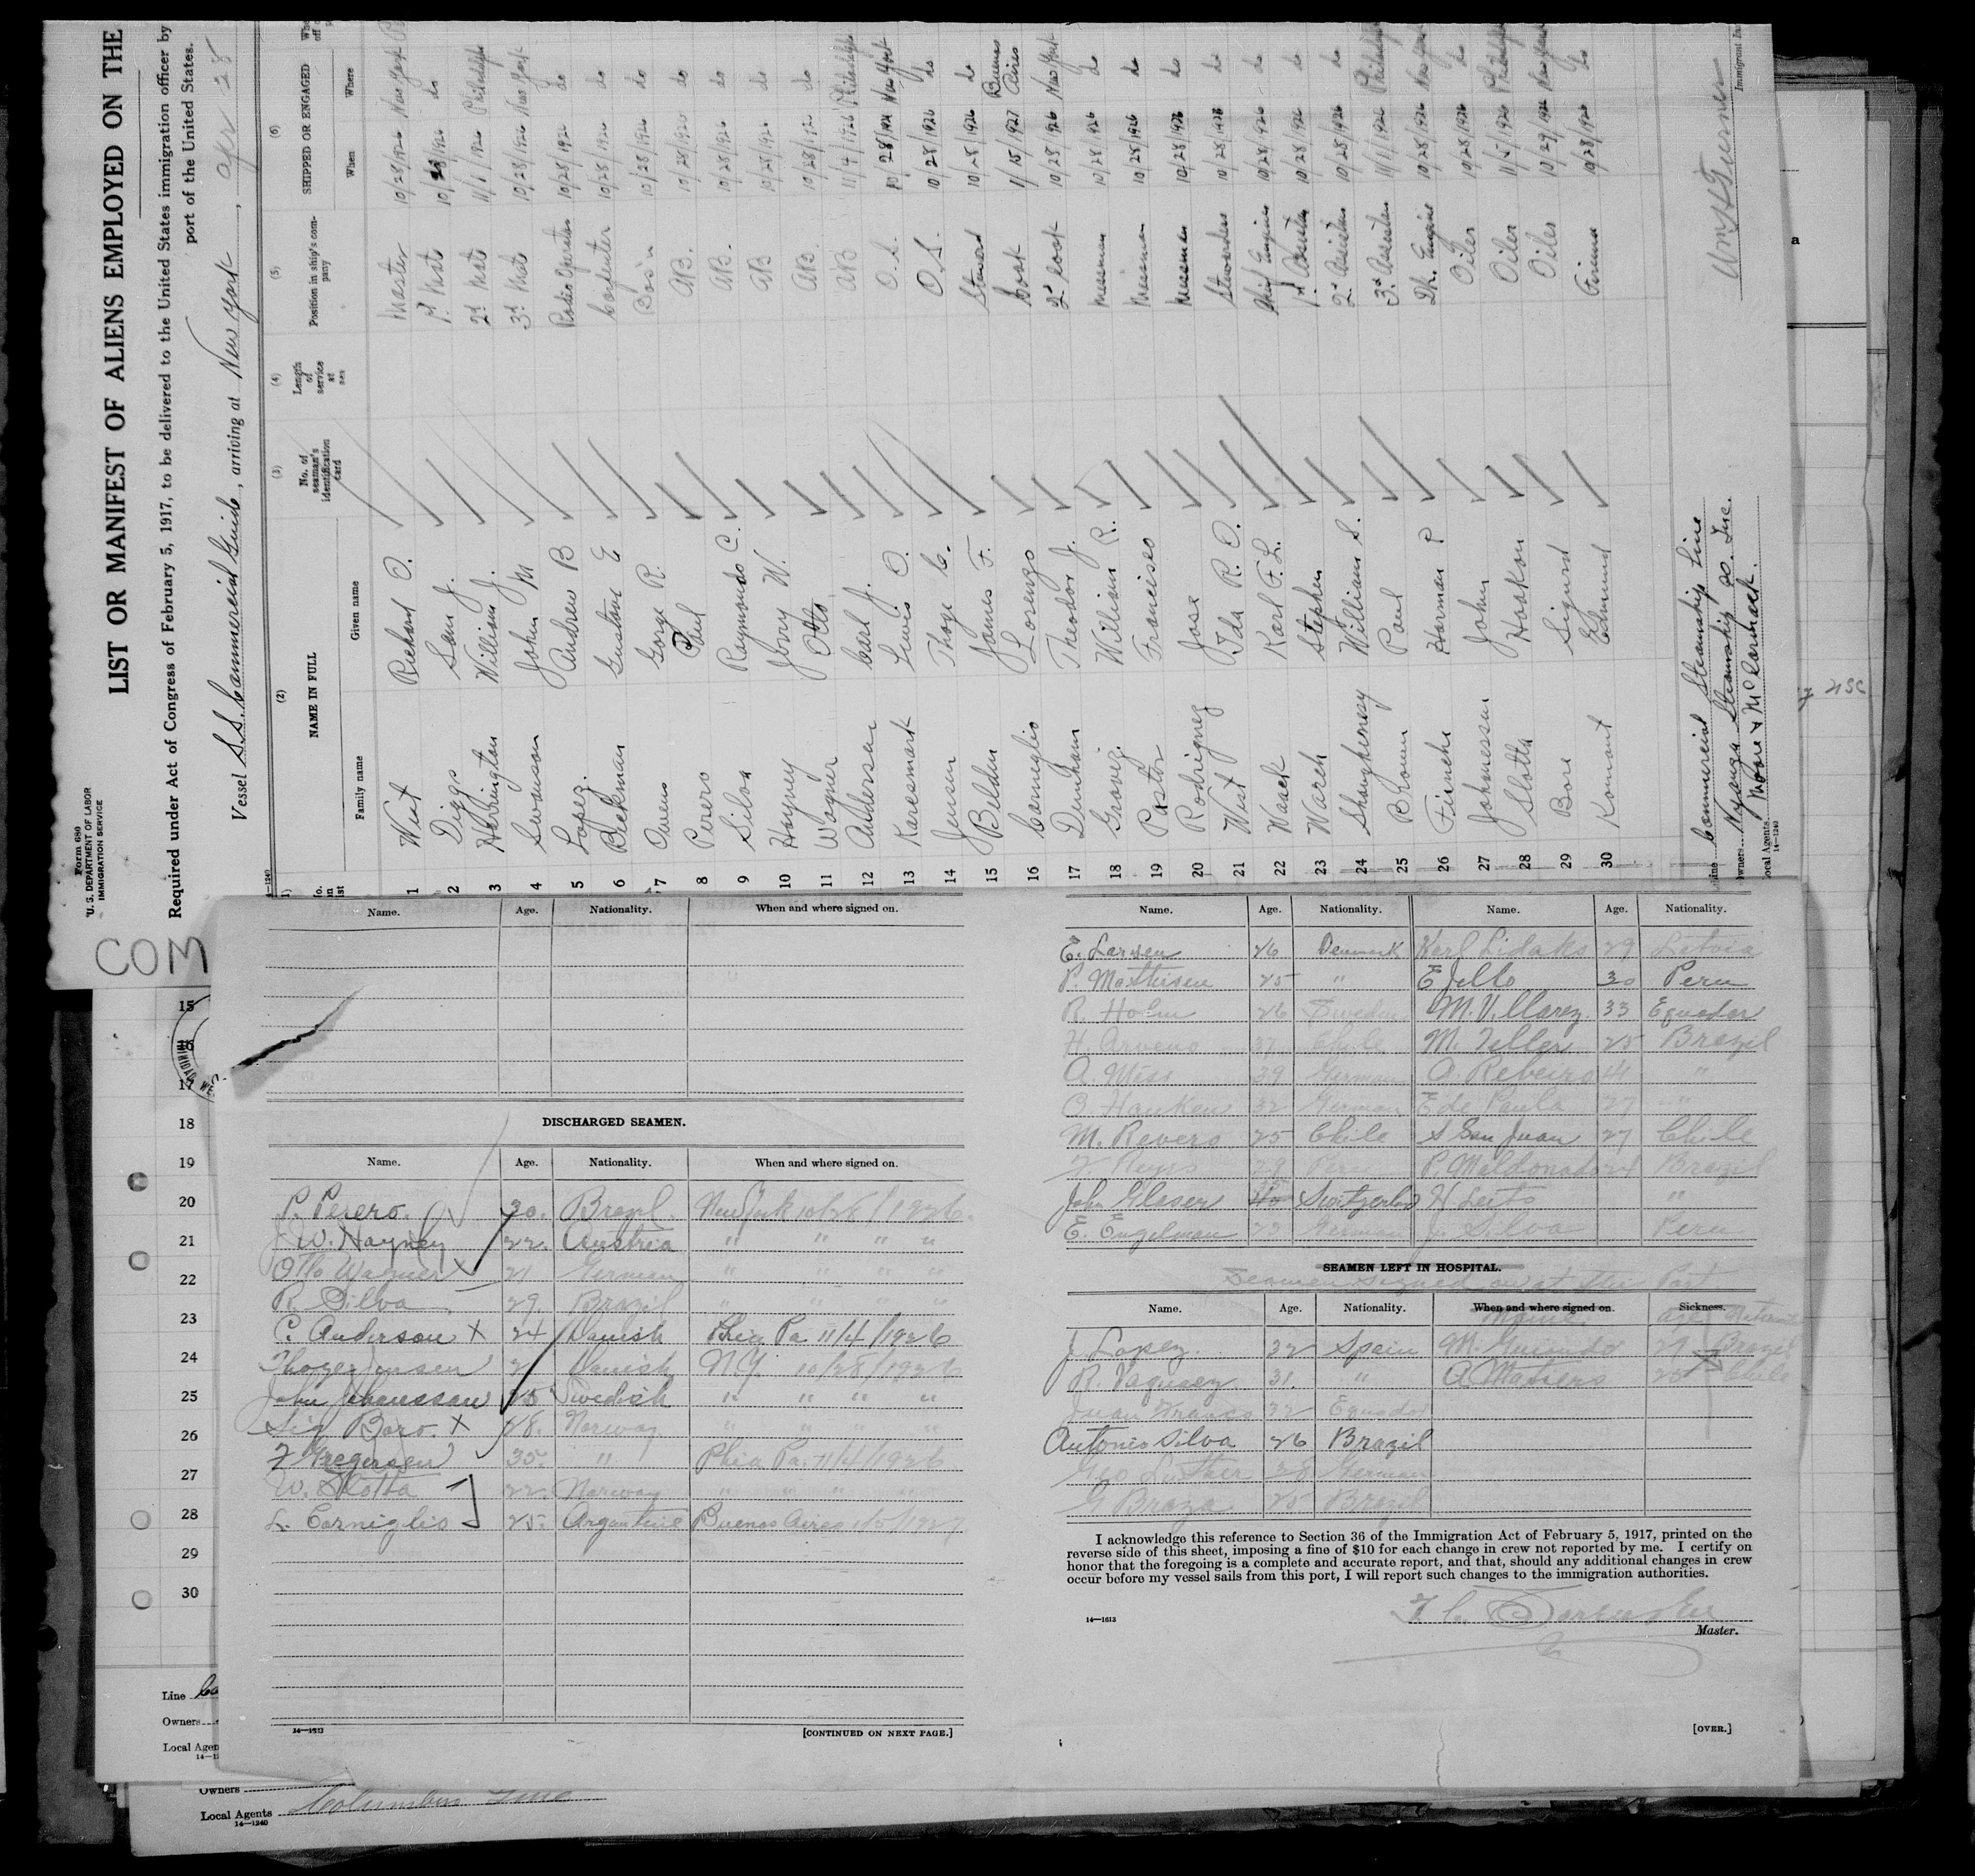 Form 680
U. S. DEPARTMENT OF LABOR
IMMIGRATION SERVICE
LIST OR MANIFEST OF ALIENS EMPLOYED ON THE
Required under Act of Congress of February 5, 1917, to be delivered to the United States immigration officer by
port of the United States.
Vessel S.S. Commercial Guide, arriving at New York, Apr 28
14—1240
(2) (3) (4) (5) (6)
NAME IN FULL No. of seaman's identification card Length of service at sea Position in ship's company SHIPPED OR ENGAGED
Family name Given name When Where
1 West Richard O. Master 10/28/1926 New York
2 Diggs Sam J. 1st Mate 10/28/1926 do
3 Harrington William J. 2d Mate 11/1/1926 Philadelp
4 Swanson John M 3d Mate 10/28/1926 New York
5 Lopez Andrew B Radio Operator 10/28/1926 do
6 Beckman Gustave E Carpenter 10/28/1926 do
7 Owens George R. Bos'n 10/28/1926 do
8 Perero Paul AB. 10/28/1926 do
9 Silva Raymondo C. AB. 10/28/1926 do
10 Hayney Jerry W. AB 10/28/1926 do
11 Wagner Otto AB. 10/28/1926 do
12 Anderson Carl J. AB 11/4/1926 Philadelp
13 Karesmark Lewis O. O.S. 10/28/1926 New York
14 Jensen Thoge C. O.S. 10/28/1926 do
15 Belden James F. Steward 10/28/1926 do
16 Carneglio Lorenzo Cook 1/15/1927 Buenos Aires
17 Dunnham Theodor J. 2d Cook 10/28/1926 New York
18 William R. Messman 10/28/1926 do
19 Pastor Francisco Messman 10/28/1926 do
20 Rodriguez Jose Messman 10/28/1926 do
21 West Ida R. O. Stewardess 10/28/1926 do
22 Waack Karl F. L. Chief Engine 10/28/1926 do
23 Warch Stephen 1st Assistan 10/28/1926 do
24 Shaughnessy William S. 2d Assistan 10/28/1926 do
25 Brown Paul 3d Assistan 11/1/1926 Philadelp
26 Harman P Dk. Engine 10/28/1926 New York
27 Johanessen John Oiler 10/28/1926 do
28 Slotta Haakon Oiler 11/5/1926 Philadelp
29 Bore Sigurd Oiler 10/29/1926 New York
30 Komant Edmund Fireman 10/28/1926 do
Line Commercial Steamship Line
Owners Nyanza Steamship Co. Inc.
Local Agents Moore & McCormack.
14—1240
Immigrant In
COM
Name. Age. Nationality. When and where signed on.
DISCHARGED SEAMEN.
Name. Age. Nationality. When and where signed on.
P. Perero. 30. Brazil. New York 10/28/1926.
J W. Hayney 22. Austria " " " "
Otto Wagner X 21 German " " " "
R. Silva 29. Brazil " " "
C. Anderson X 24 Danish Phia Pa 11/4/1926
Thoge Jensen 21 Danish N.Y. 10/28/1926
John Johanssan 25 Swedish " " " "
Sig Boro. X 48. Norway " " " "
F Gregersen 35. " Phia Pa. 11/4/1926
W. Slotta 22. Norway " " " "
L. Corniglio 25. Argentine Buenos Aires 1/15/1927
14—1613
[CONTINUED ON NEXT PAGE.]
Name. Age. Nationality. Name. Age. Nationality.
E. Larsen 26 Denmark Karl Lidaks 29 Latvia
P. Mathisen 25 " E Jello 30 Peru
R. Holm 26 Sweden M. Villarez. 33 Equador
H. Arveno 37 Chile M. Teller 25 Brazil
A. Miss 39 German O. Rebeiro 41 "
O. Hauken 32 German E de Paula 27 "
M. Revero 25 Chile S San Juan 27 Chile
F. Reyes 29 Peru P. Maldonado Brazil
John Glaser Switzerland H Leito "
E. Engelman 23 German J. Silva Peru
SEAMEN LEFT IN HOSPITAL.
Seamen signed on at this Port
Name. Age. Nationality. When and where signed on. Sickness.
Name age
J. Lopez. 32 Spain M. 29 Brazil
R. Vaquez 31. " A. 25 Chile
Juan Franco 32 Equador
Antonio Silva 26 Brazil
Geo Luther 28 German
G Braza 25 Brazil
I acknowledge this reference to Section 36 of the Immigration Act of February 5, 1917, printed on the
reverse side of this sheet, imposing a fine of $10 for each change in crew not reported by me. I certify on
honor that the foregoing is a complete and accurate report, and that, should any additional changes in crew
occur before my vessel sails from this port, I will report such changes to the immigration authorities.
14—1613
Master.
[OVER.]
15
17
18
19
20
21
22
23
24
25
26
27
28
29
30
Line Co
Owners
Local Agen
Owners
Local Agents Columbus Line
14—1240